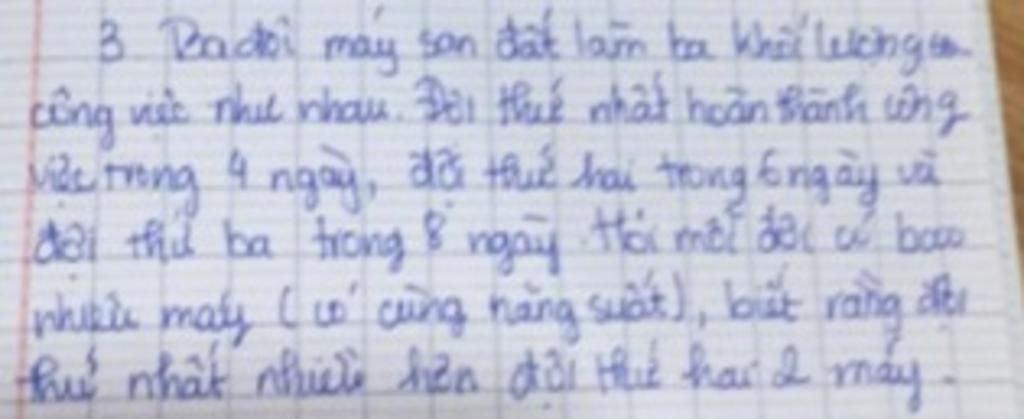 3 Ba đội máy san đất làm ba khối lượng
công việc như nhau. Đội thứ nhất hoàn thành công
việc trong 4 ngày, đội thứ hai trong 6 ngày và
đội thứ ba trong 8 ngày. Hỏi mỗi đội có bao
nhiêu máy (có cùng năng suất), biết rằng đội
thứ nhất nhiều hơn đội thứ hai 2 máy.